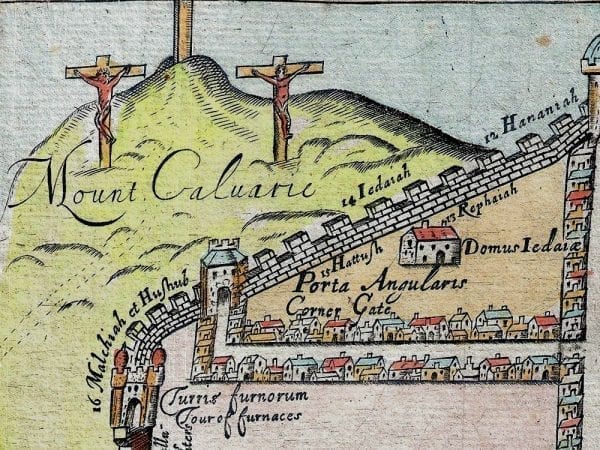 12 Hananiah
Mount Calvarie
14 Iedaiah
13 Rephaiah
Domus Iedaiæ
15 Hattush
Porta Angularis
Corner Gate
16 Malchiah et Hushub
Turris furnorum
Tour of furnaces